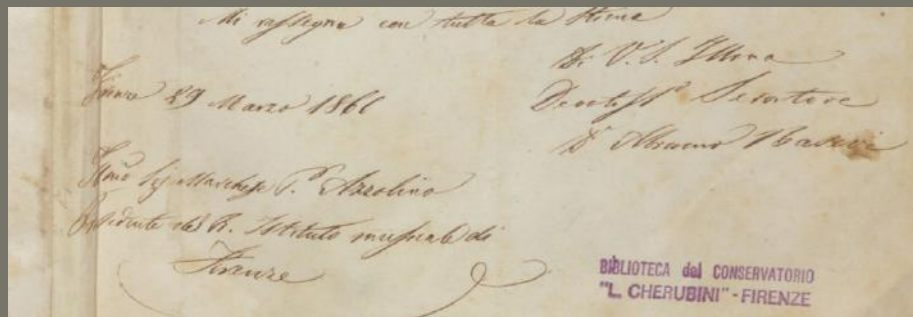 Mi rassegno con tutta la stima
Di V. S. Illma
Firenze 29 Marzo 1861
Devotiss.º Servitore
Dr Abramo Basevi
Illmo Sig Marchese P.e Azzolino
Presidente del R. Istituto musicale di
Firenze
BIBLIOTECA del CONSERVATORIO
"L. CHERUBINI" - FIRENZE